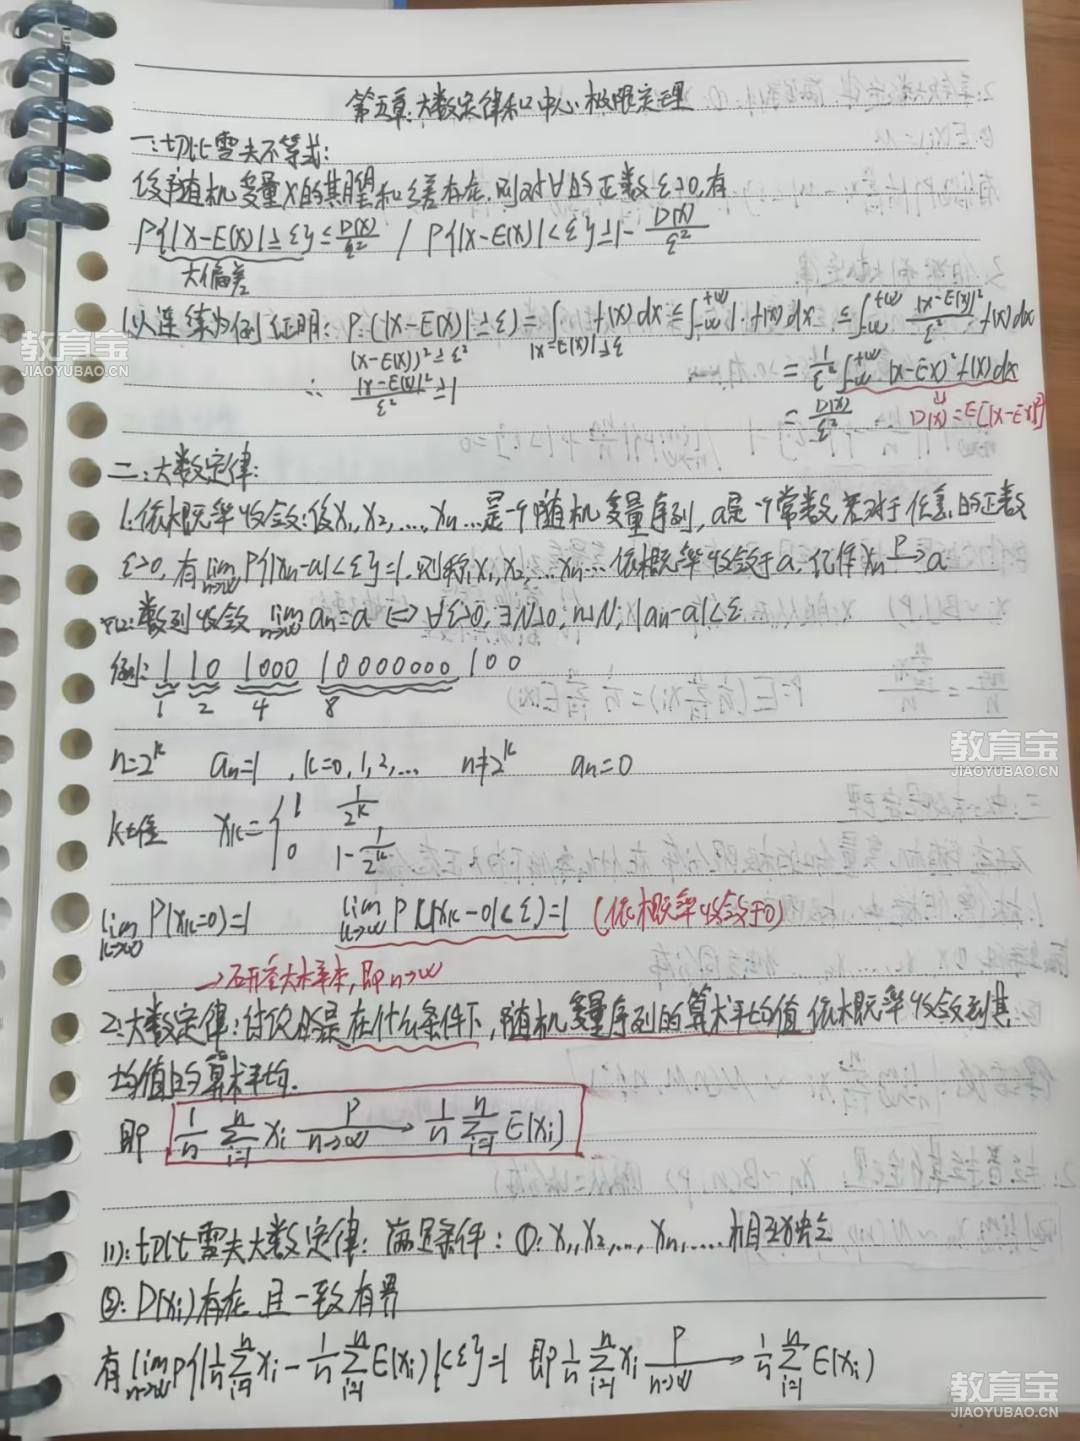 第五章:大数定律和中心极限定理
一:切比雪夫不等式:
设随机变量X的期望和方差存在,则对∀的正数ε>0,有
P{|X-E(X)|≥ε}≤D(X)/ε² / P{|X-E(X)|<ε}≥1-D(X)/ε²
大偏差
1.以连续为例证明: P(|X-E(X)|≥ε)=∫_{|x-E(X)|≥ε} f(x)dx ≤∫_{-∞}^{+∞} 1·f(x)dx ≤∫_{-∞}^{+∞} |x-E(x)|²/ε² ·f(x)dx
(x-E(X))²≥ε²
∴ |x-E(x)|²/ε²≥1
=1/ε² ∫_{-∞}^{+∞} (x-EX)²f(x)dx
=D(X)/ε² D(x)=E[(X-EX)²]
二:大数定律:
1.依概率收敛:设X₁,X₂,…,Xn…是一个随机变量序列,a是一个常数,若对于任意的正数
ε>0,有lim_{n→∞}P{|Xn-a|<ε}=1.则称X₁,X₂,…Xn…依概率收敛于a,记作Xn—P→a
数列收敛 lim_{n→∞} an=a ⇔ ∀ε>0,∃N>0,n>N,|an-a|<ε
例: 1 10 1000 10000000 100
1 2 4 8
n=2^k an=1 ,k=0,1,2,… n≠2^k an=0
Xk={1 1/2^k
0 1-1/2^k
lim_{k→∞}P(Xk=0)=1 lim_{k→∞}P(|Xk-0|<ε)=1 (依概率收敛于0)
→研究大样本,即n→∞
2.大数定律:讨论的是在什么条件下,随机变量序列的算术平均值依概率收敛到其
均值的算术平均.
即 1/n Σ_{i=1}^{n} Xi —P→_{n→∞} 1/n Σ_{i=1}^{n} E(Xi)
(1):切比雪夫大数定律:满足条件:①:X₁,X₂,…,Xn,…相互独立
②:D(Xi)存在且一致有界
有lim_{n→∞}P{|1/n Σ_{i=1}^{n} Xi - 1/n Σ_{i=1}^{n} E(Xi)|<ε}=1 即1/n Σ_{i=1}^{n} Xi —P→_{n→∞} 1/n Σ_{i=1}^{n} E(Xi)
教育宝
JIAOYUBAO.CN
教育宝
JIAOYUBAO.CN
教育宝
JIAOYUBAO.CN